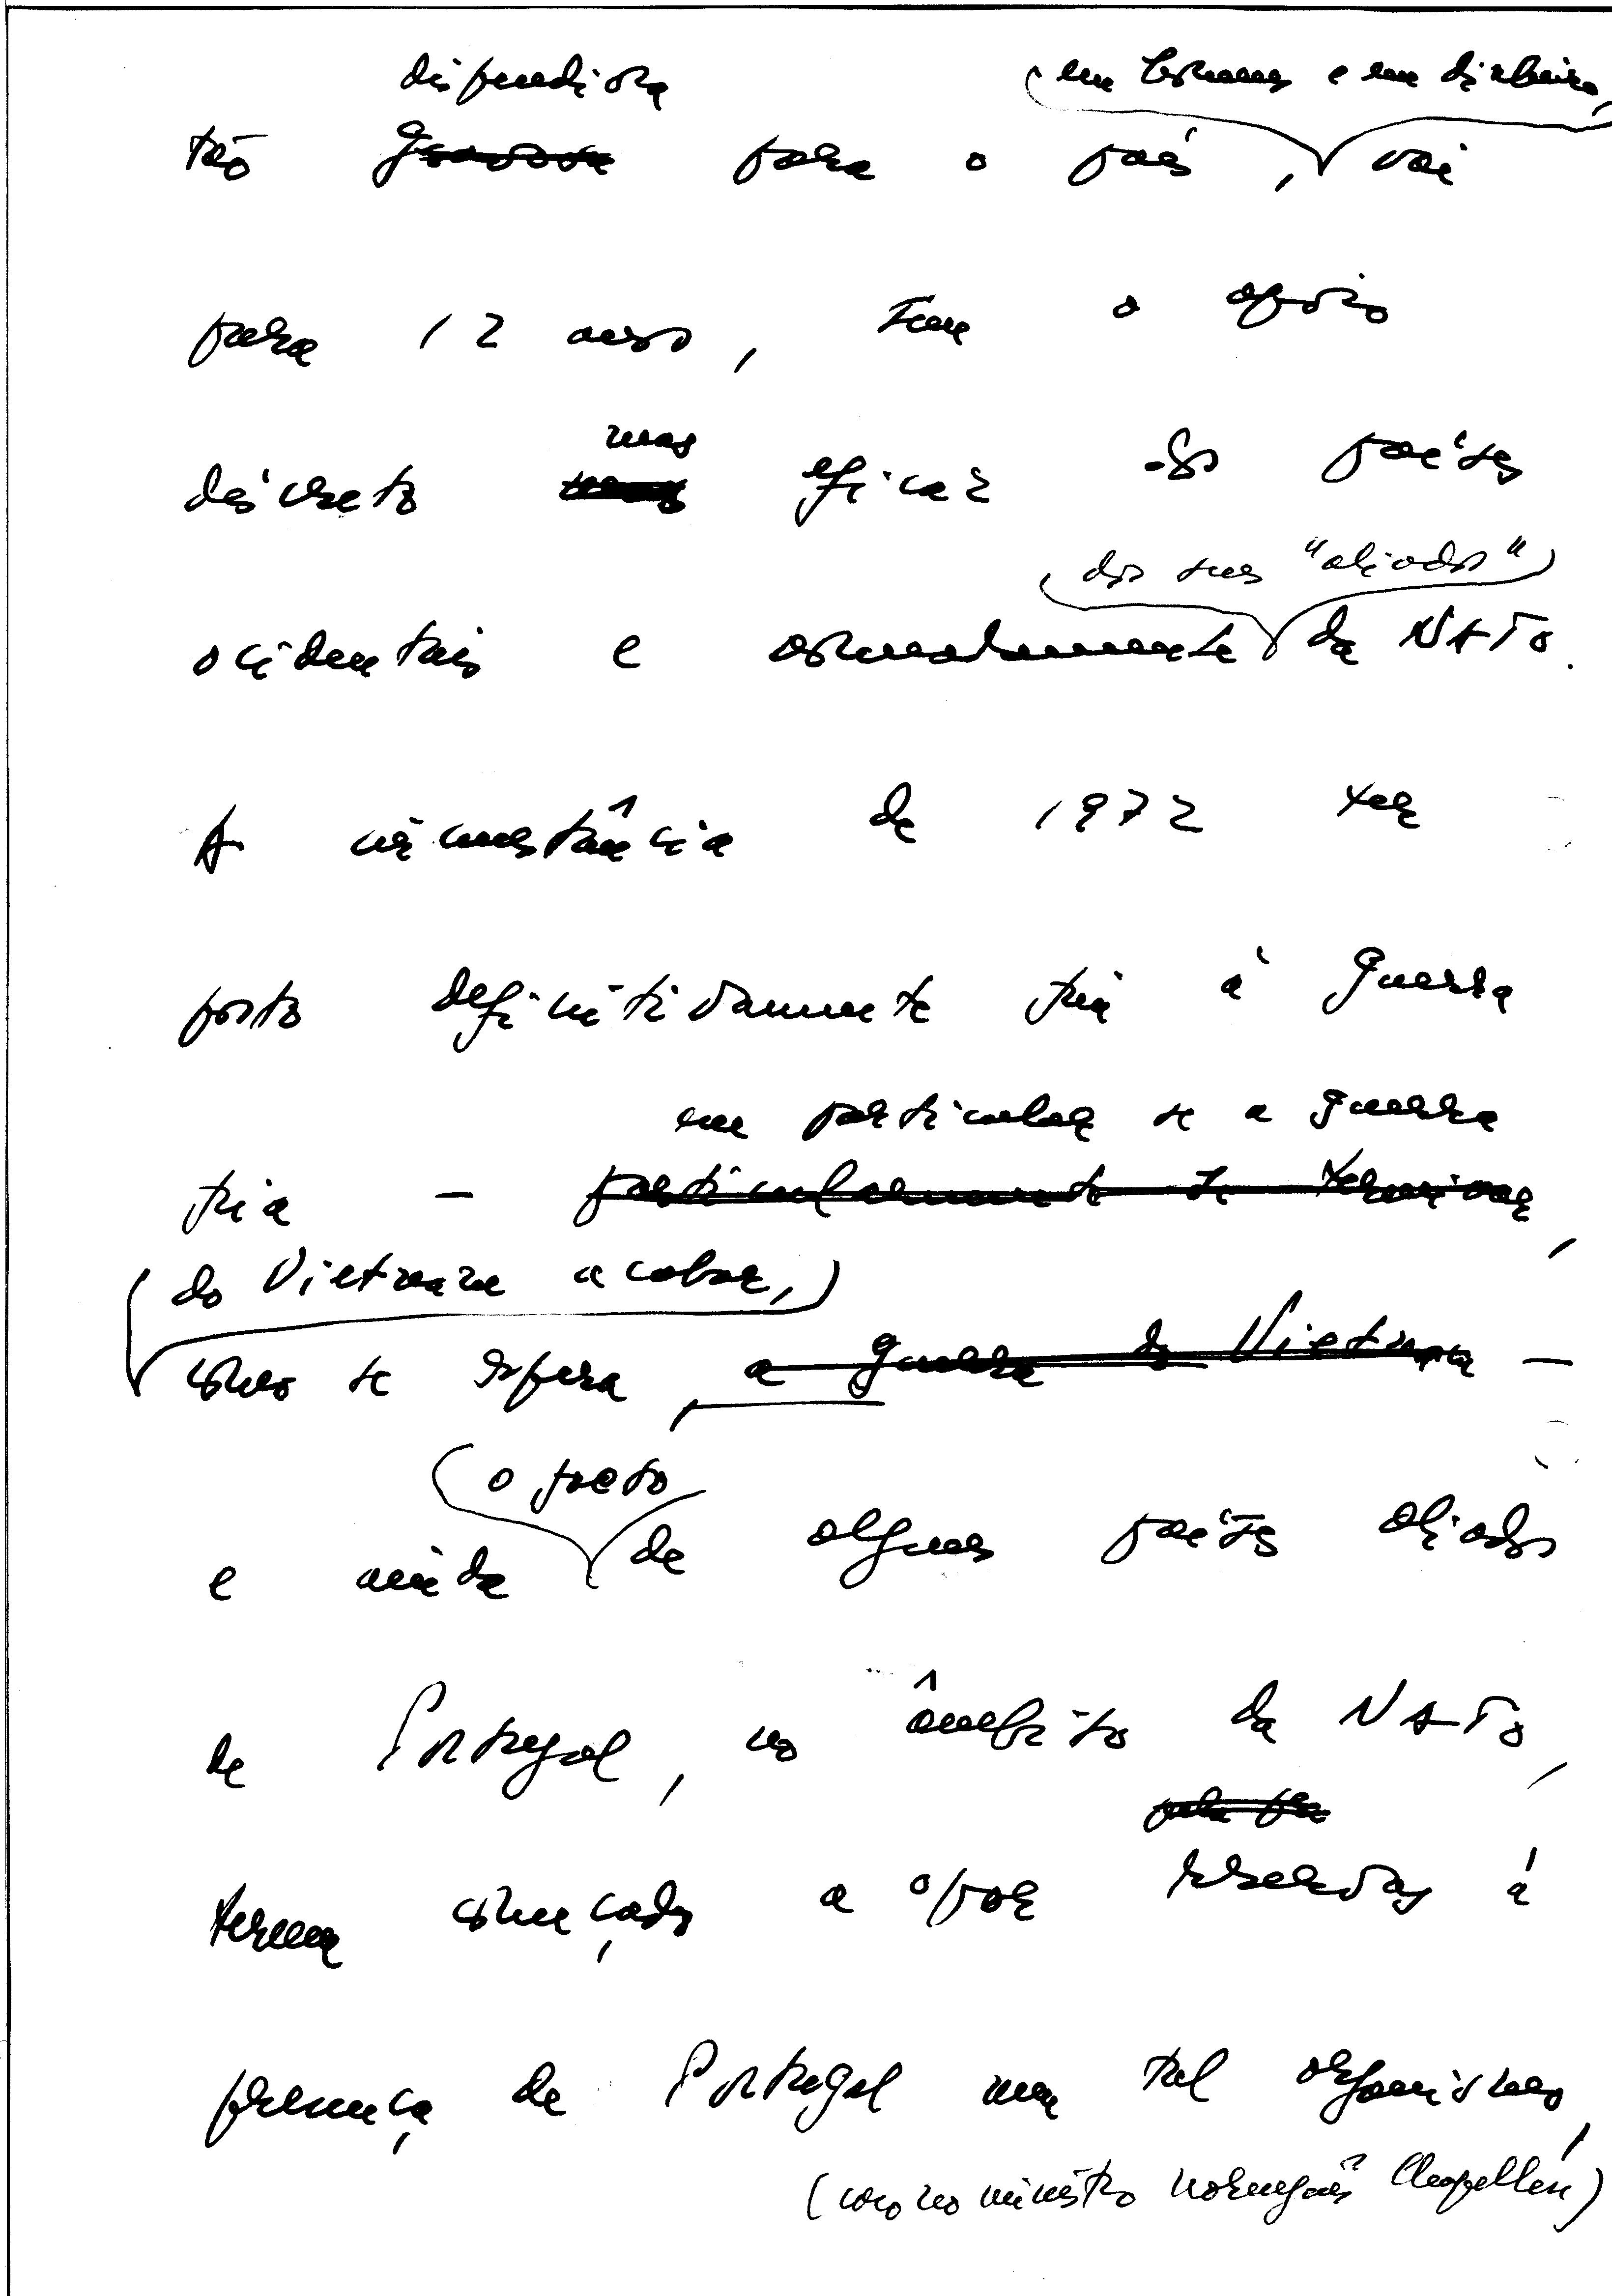 dispendiosa
em homens e em dinheiro,
tão para o país, vai
para 12 anos, sem o apoio
mas
discreto mas eficaz dos países
dos seus "aliados"
ocidentais e da NATO.
A circunstância de 1972 ter
posto definitivamente fim à guerra
em particular se a guerra
fria — particularmente se terminar,
do Vietnam acabar,
como se espera, a guerra do Vietnam —
o facto
e ainda de alguns países aliados
de Portugal, no âmbito da NATO,
terem começado a opor reservas à
presença de Portugal num tal organismo,
(como o ministro norueguês)